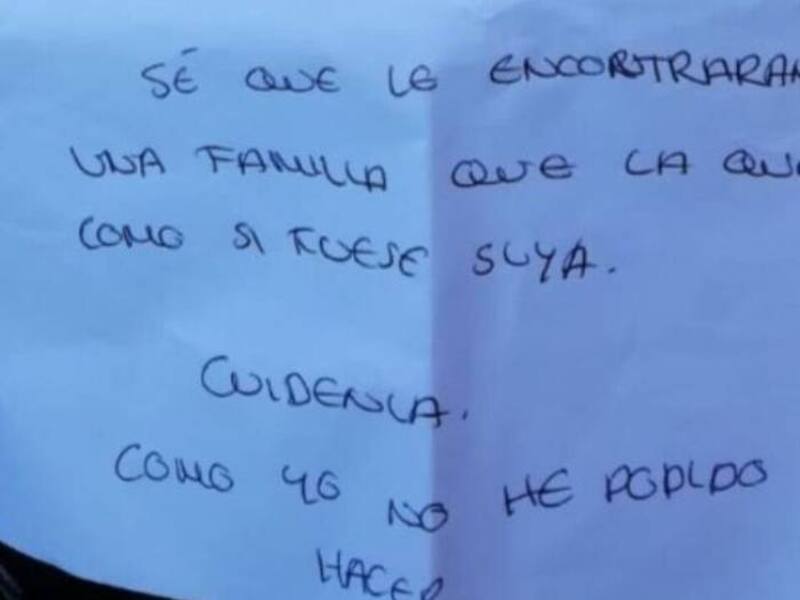 SÉ QUE LE ENCORTRARAN
UNA FAMILIA QUE LA QU
COMO SI FUESE SUYA.
CUIDENLA.
COMO YO NO HE PODIDO
HACER